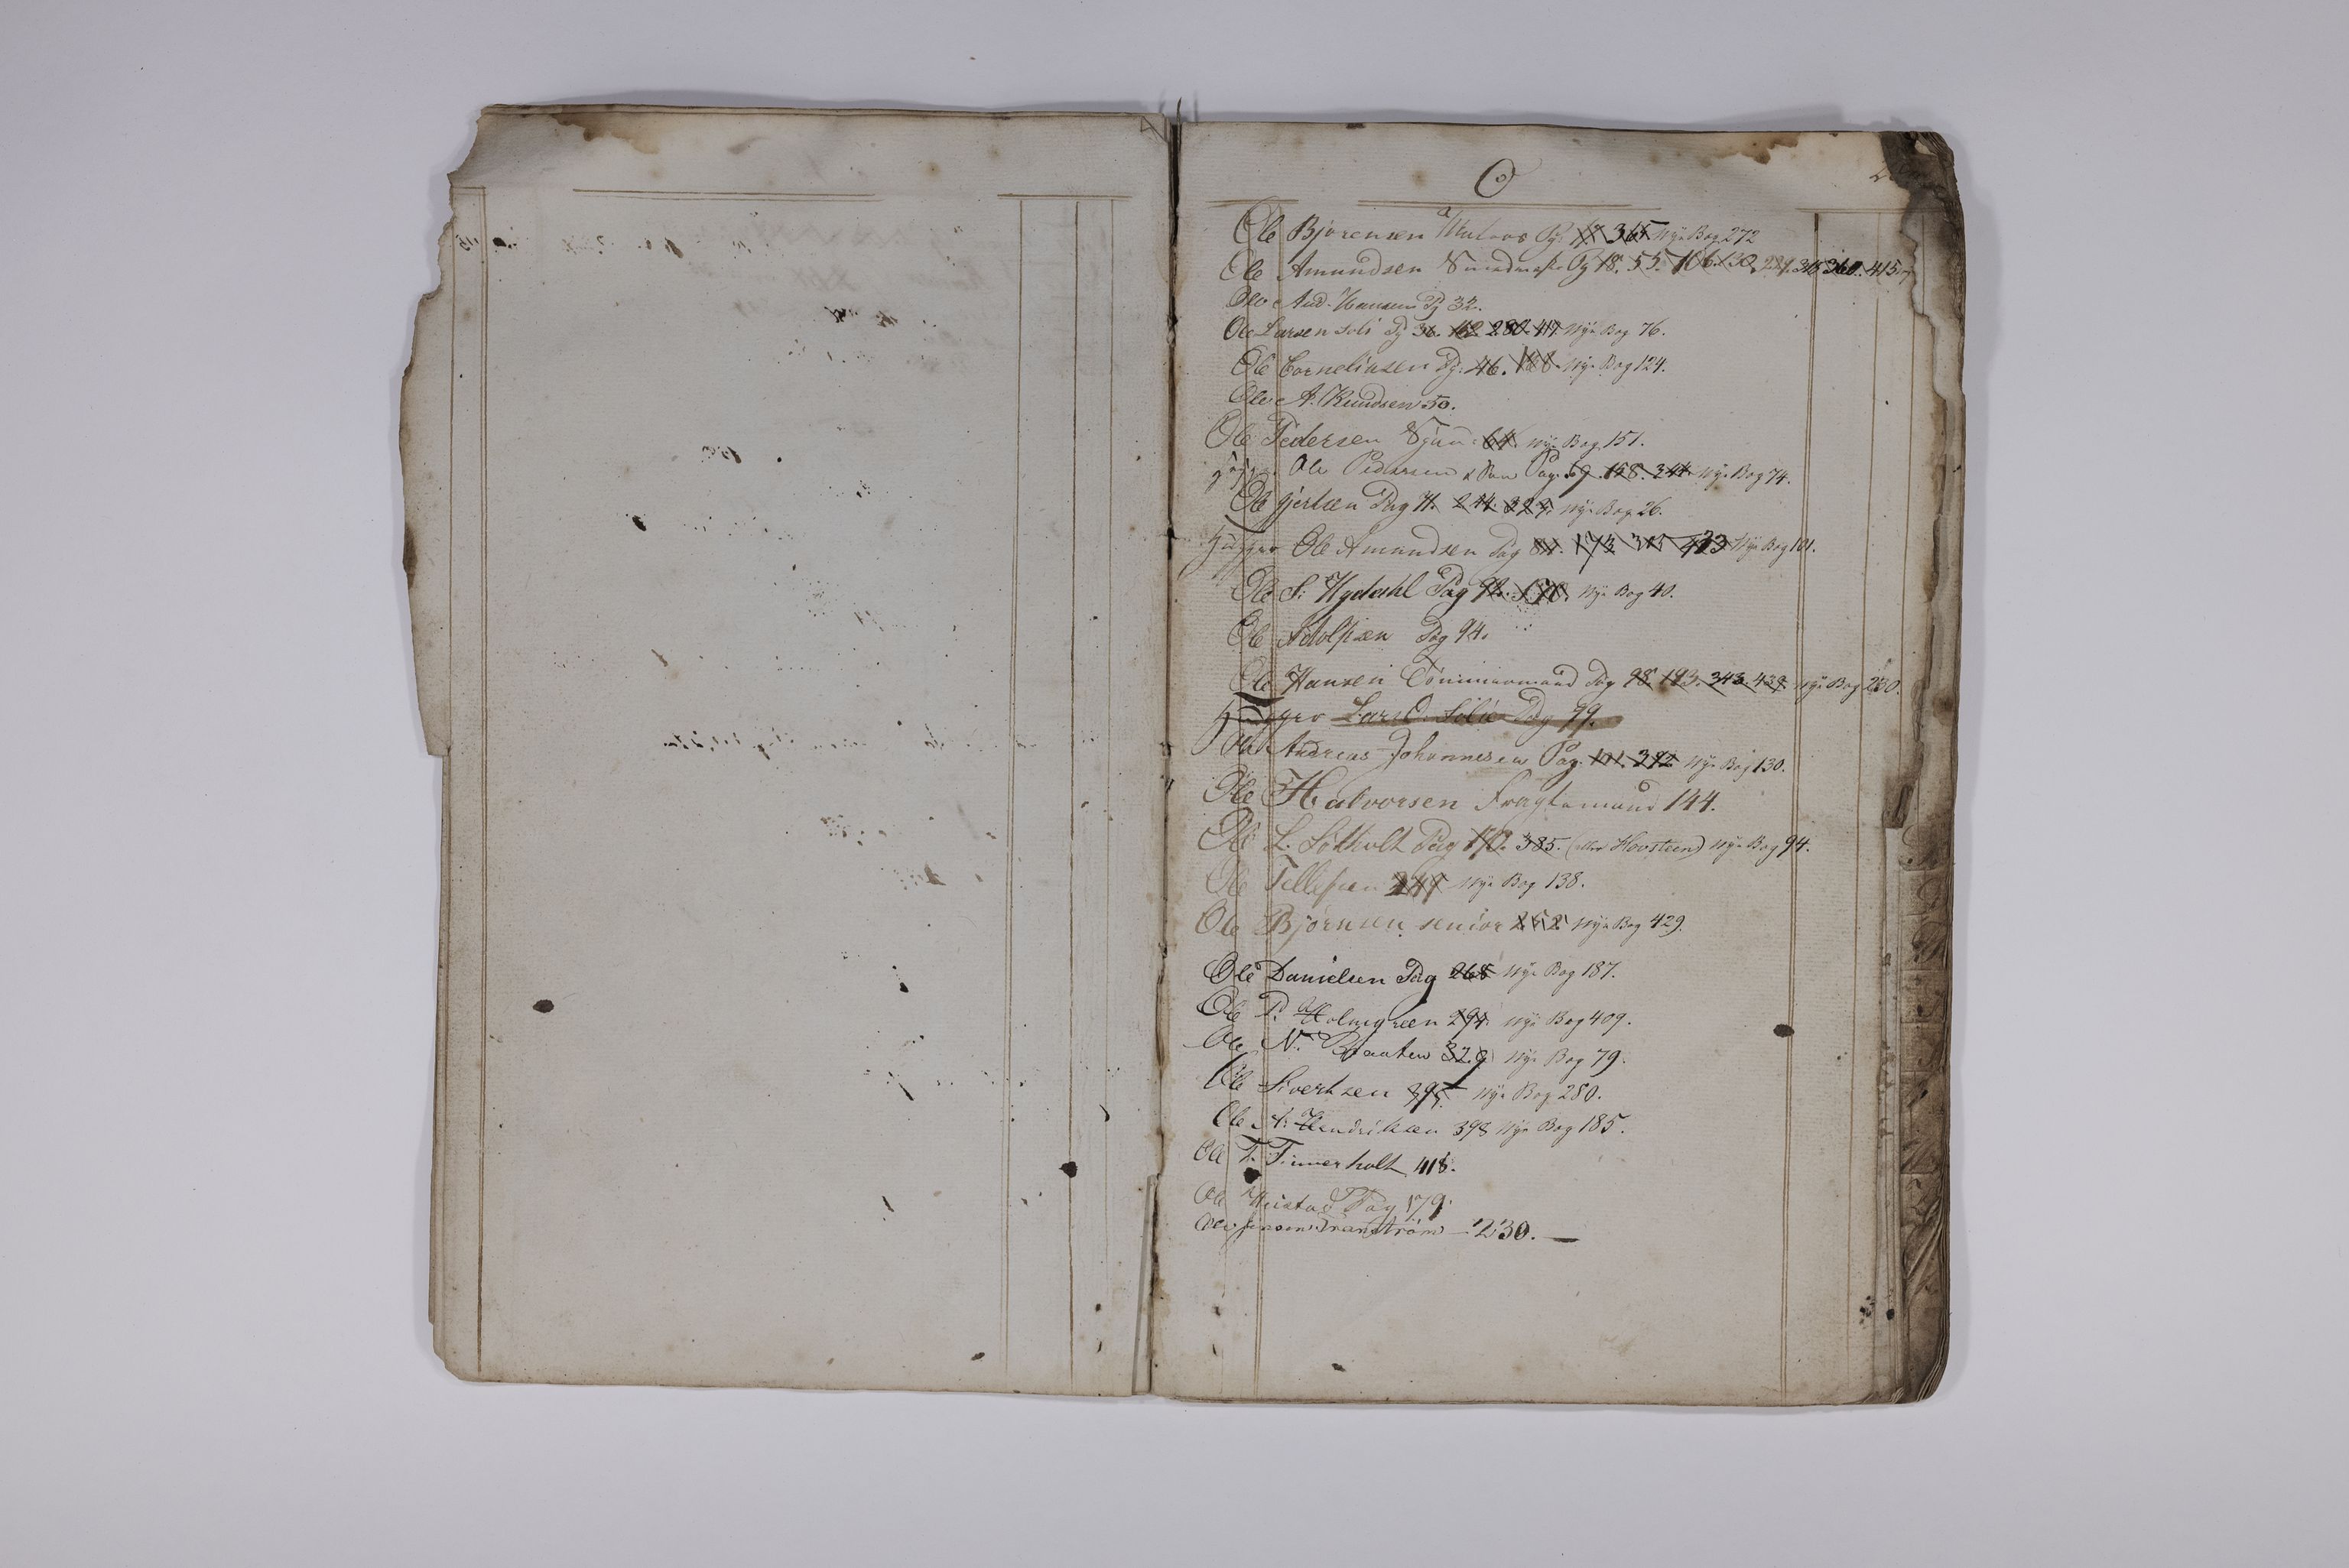 O
Ole Bjørensen Matros Pg: 17 365 Nye Bog 272
Ole Amundsen Smedmester Pg 18. 55. 106. 130. 221. 315 360. 415
Ole And. Hansen Pg 32.
Ole Larsen Soli Pg 36. 162 280 417 Nye Bog 76.
Ole Corneliusen Pg: 46. 188 Nye Bog 124.
Ole A. Knudsen 50.
Ole Pedersen 64. Nye Bog 151.
Ole Pedersen Pag. 69. 158. 344. Nye Bog 74.
Ole Gjertsen Pag 71. 244. 329. Nye Bog 26.
Hugger Ole Amundsen Pag 84. 173 315 423 Nye Bog 101.
Ole S: Hydahl Pag 92. 170. Nye Bog 40.
Ole Adolfsen Pag 94.
Ole Hansen Tømmermand Pag 98 193. 343 439 Nye Bog 230.
Hugger Lars O. Solie Pag 99.
Ole Andreas Johannesen Pag. 101. 392 Nye Bog 130.
Ole Halvorsen Fragtemand 144.
Ole L. Søtholt Pag 170. 385. (eller Hovsteen) Nye Bog 94.
Ole Tellefsen 249 Nye Bog 138.
Ole Bjørnsen senior 252 Nye Bog 429.
Ole Danielsen Pag 268 Nye Bog 187.
Ole P. Holmgreen 294 Nye Bog 409.
Ole N. Braaten 329 Nye Bog 79.
Ole Sivertsen 395 Nye Bog 280.
Ole A: Hendriksen 398 Nye Bog 185.
Ole T. Timmerholt 418.
Ole Pag 179.
Ole Jensen Tranström — 230. —